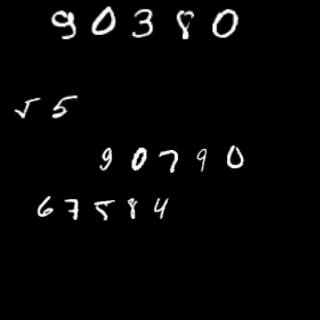 90380
55
90790
67584